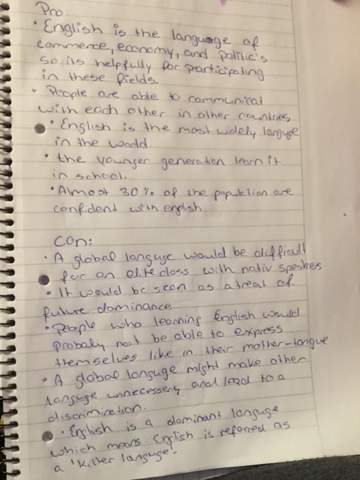 Pro
• English is the language of
commerce, economy, and politics
so its helpfully for participating
in these fields.
• People are able to communicat
with each other in other countries
• English is the most widely languge
in the world.
• the younger generation learn it
in school.
• Almost 30% of the population are
confident with english.
Con:
• A global languge would be difficult
for an elite class with nativ speakers
• It would be seen as a treat of
future dominance
• People who learning English would
probaly not be able to express
themselves like in their mother-tongue
• A global languge might make other
languge unnecessery and lead to a
discrimination.
• English is a dominant languge
which means English is referred as
a "killer languge".